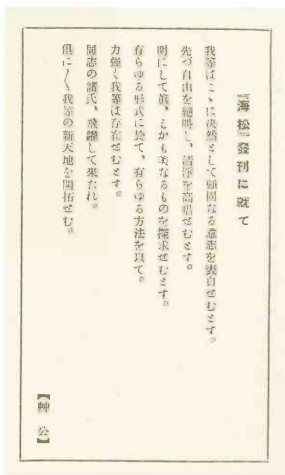 『海松』發刊に就て
我等はこゝに決然として強固なる意志を表白せむとす。
先づ自由を絕叫し、清淨を高唱せむとす。
明にして眞、しかも美なるものを探求せむとす。
有らゆる形式に於て、有らゆる方法を以て。
力强く我等は存在せむとす。
同志の諸氏、飛躍して來たれ。
俱に〳〵我等の新天地を開拓せむ。
【艸公】